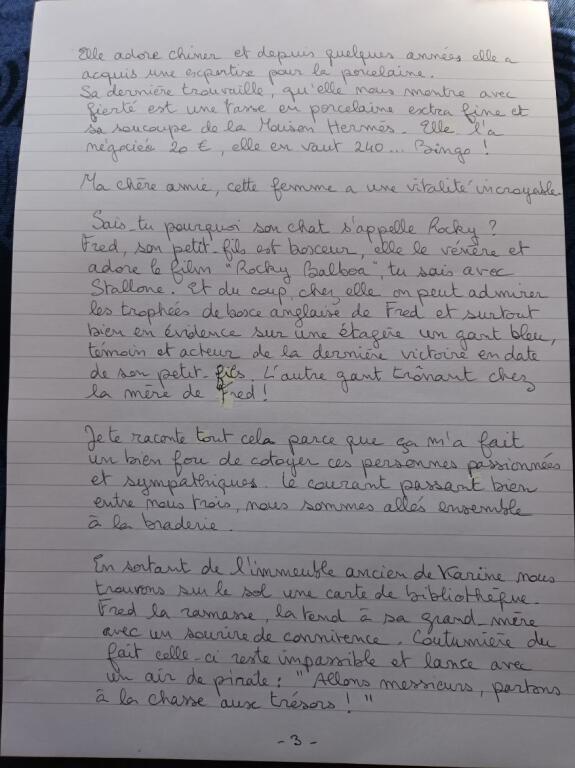 Elle adore chiner et depuis quelques années elle a
acquis une expertise pour la porcelaine.
Sa dernière trouvaille, qu'elle nous montre avec
fierté est une tasse en porcelaine extra fine et
sa soucoupe de la Maison Hermès. Elle l'a
négociée 20 €, elle en vaut 240... Bingo !
Ma chère amie, cette femme a une vitalité incroyable.
Sais-tu pourquoi son chat s'appelle Rocky ?
Fred, son petit-fils est boxeur, elle le vénère et
adore le film "Rocky Balboa", tu sais avec
Stallone. Et du coup, chez elle on peut admirer
les trophées de boxe anglaise de Fred et surtout
bien en évidence sur une étagère un gant bleu,
témoin et acteur de la dernière victoire en date
de son petit-fils. L'autre gant trônant chez
la mère de Fred !
Je te raconte tout cela parce que ça m'a fait
un bien fou de cotoyer ces personnes passionnées
et sympathiques. Le courant passant bien
entre nous trois, nous sommes allés ensemble
à la braderie.
En sortant de l'immeuble ancien de Karine nous
trouvons sur le sol une carte de bibliothèque.
Fred la ramasse, la tend à sa grand-mère
avec un sourire de connivence. Coutumière du
fait celle-ci reste impassible et lance avec
un air de pirate : "Allons messieurs, partons
à la chasse aux trésors ! "
- 3 -